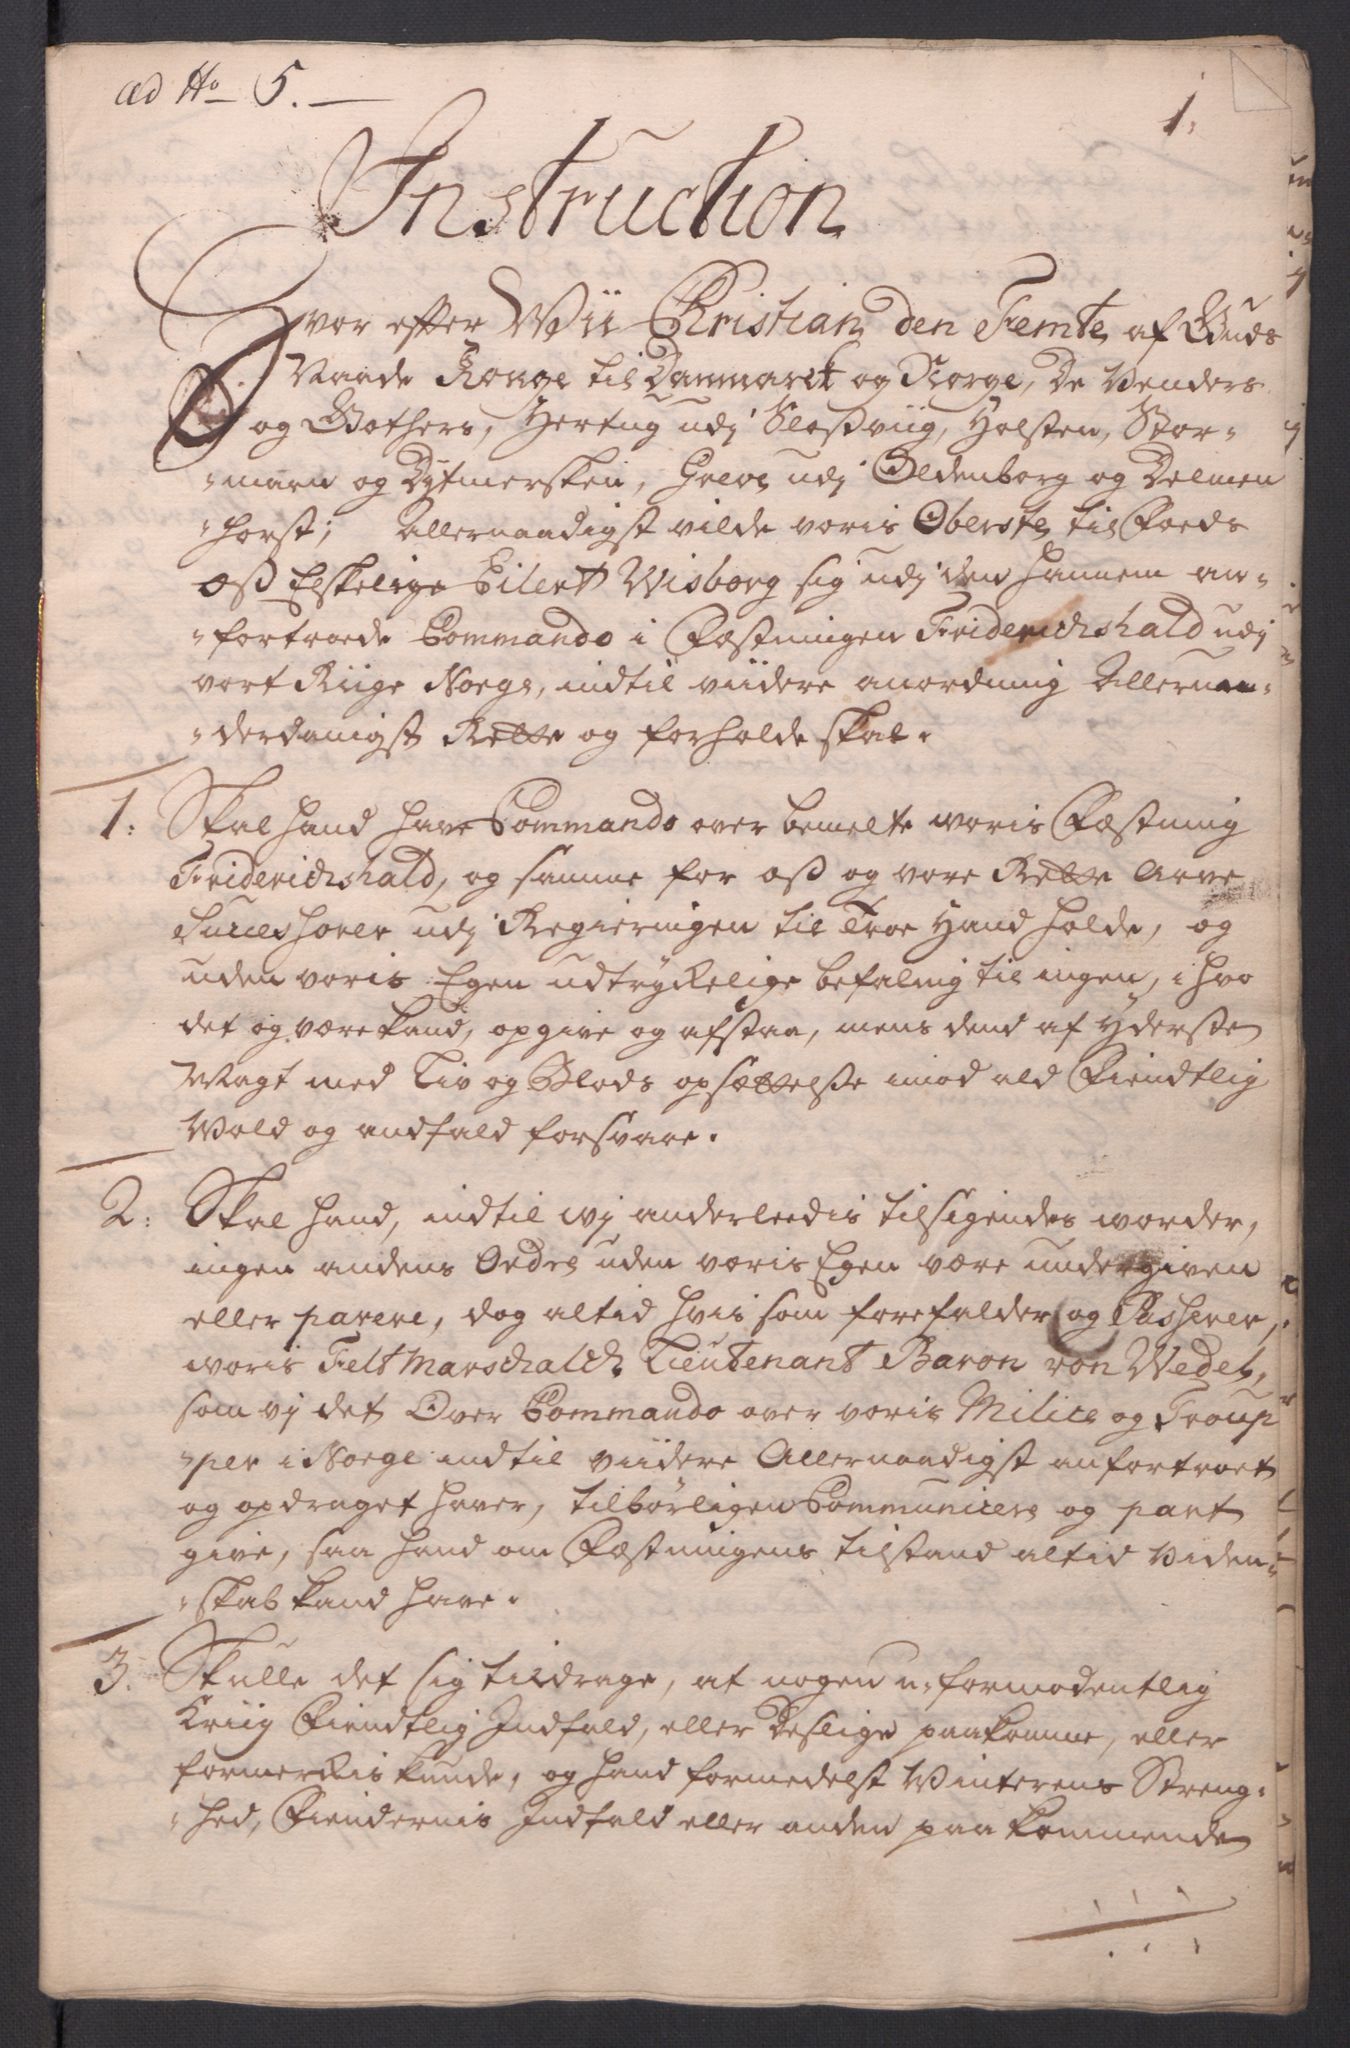 ad No 5.
1.
Instruction
Hvor efter Wii Christian den Femte af Guds
Naade Konge til Danmarck og Norge, De Venders
og Gothers, Hertug udj Sleßviig, Holsten, Stor=
=marn og Dytmersken, Greve udj Oldenborg og Delmen
=horst; Allernaadigst vilde voris Oberste til Foeds
oß Elskelige Eilert Wisborg sig udj den hannem an=
=fortroede Commando i Fæstningen Friderichshald udj
vort Riige Norge, indtil viidere anordning Allerun=
=derdanigst Rette og forholde skal.
1: Skal hand have Commando over bemelte woris Fæstning
Friderichshald, og samme for oß og vore Rette Arve
Successorer udj Regieringen til Troe Hand holde, og
uden voris Egen udtryckelige befaling til ingen, i hvo
det og være kand, opgive og afstaa, mens dend af yderste
Magt med Liv og Blods opsættelße imod ald Fiendtlig
Wold og andfald forsvare.
2: Skal hand, indtil wj anderleedis tilsigendes worder,
ingen andens Ordre uden voris Egen være undergiven
eller parere, dog altid hvis som forefalder og Passerer,
woris Felt Marschalch Lieutenant Baron von Wedel,
som vj det Over Commando over voris Milice og Troup
=per i Norge indtil viidere Allernaadigst anfortroet
og opdraget haver, tilbørligen Communicere og part
give, saa hand om Fæstningens tilstand altid Viden=
=skab kand have.
3. Skulle det sig tildrage, at nogen u=formodentlig
Kriig Fiendtlig Indfald, eller deslige paakomme, eller
formerckis kunde, og hand formedelst Vinterens Streng=
=hed, Fiendernis Indfald eller anden paakommende